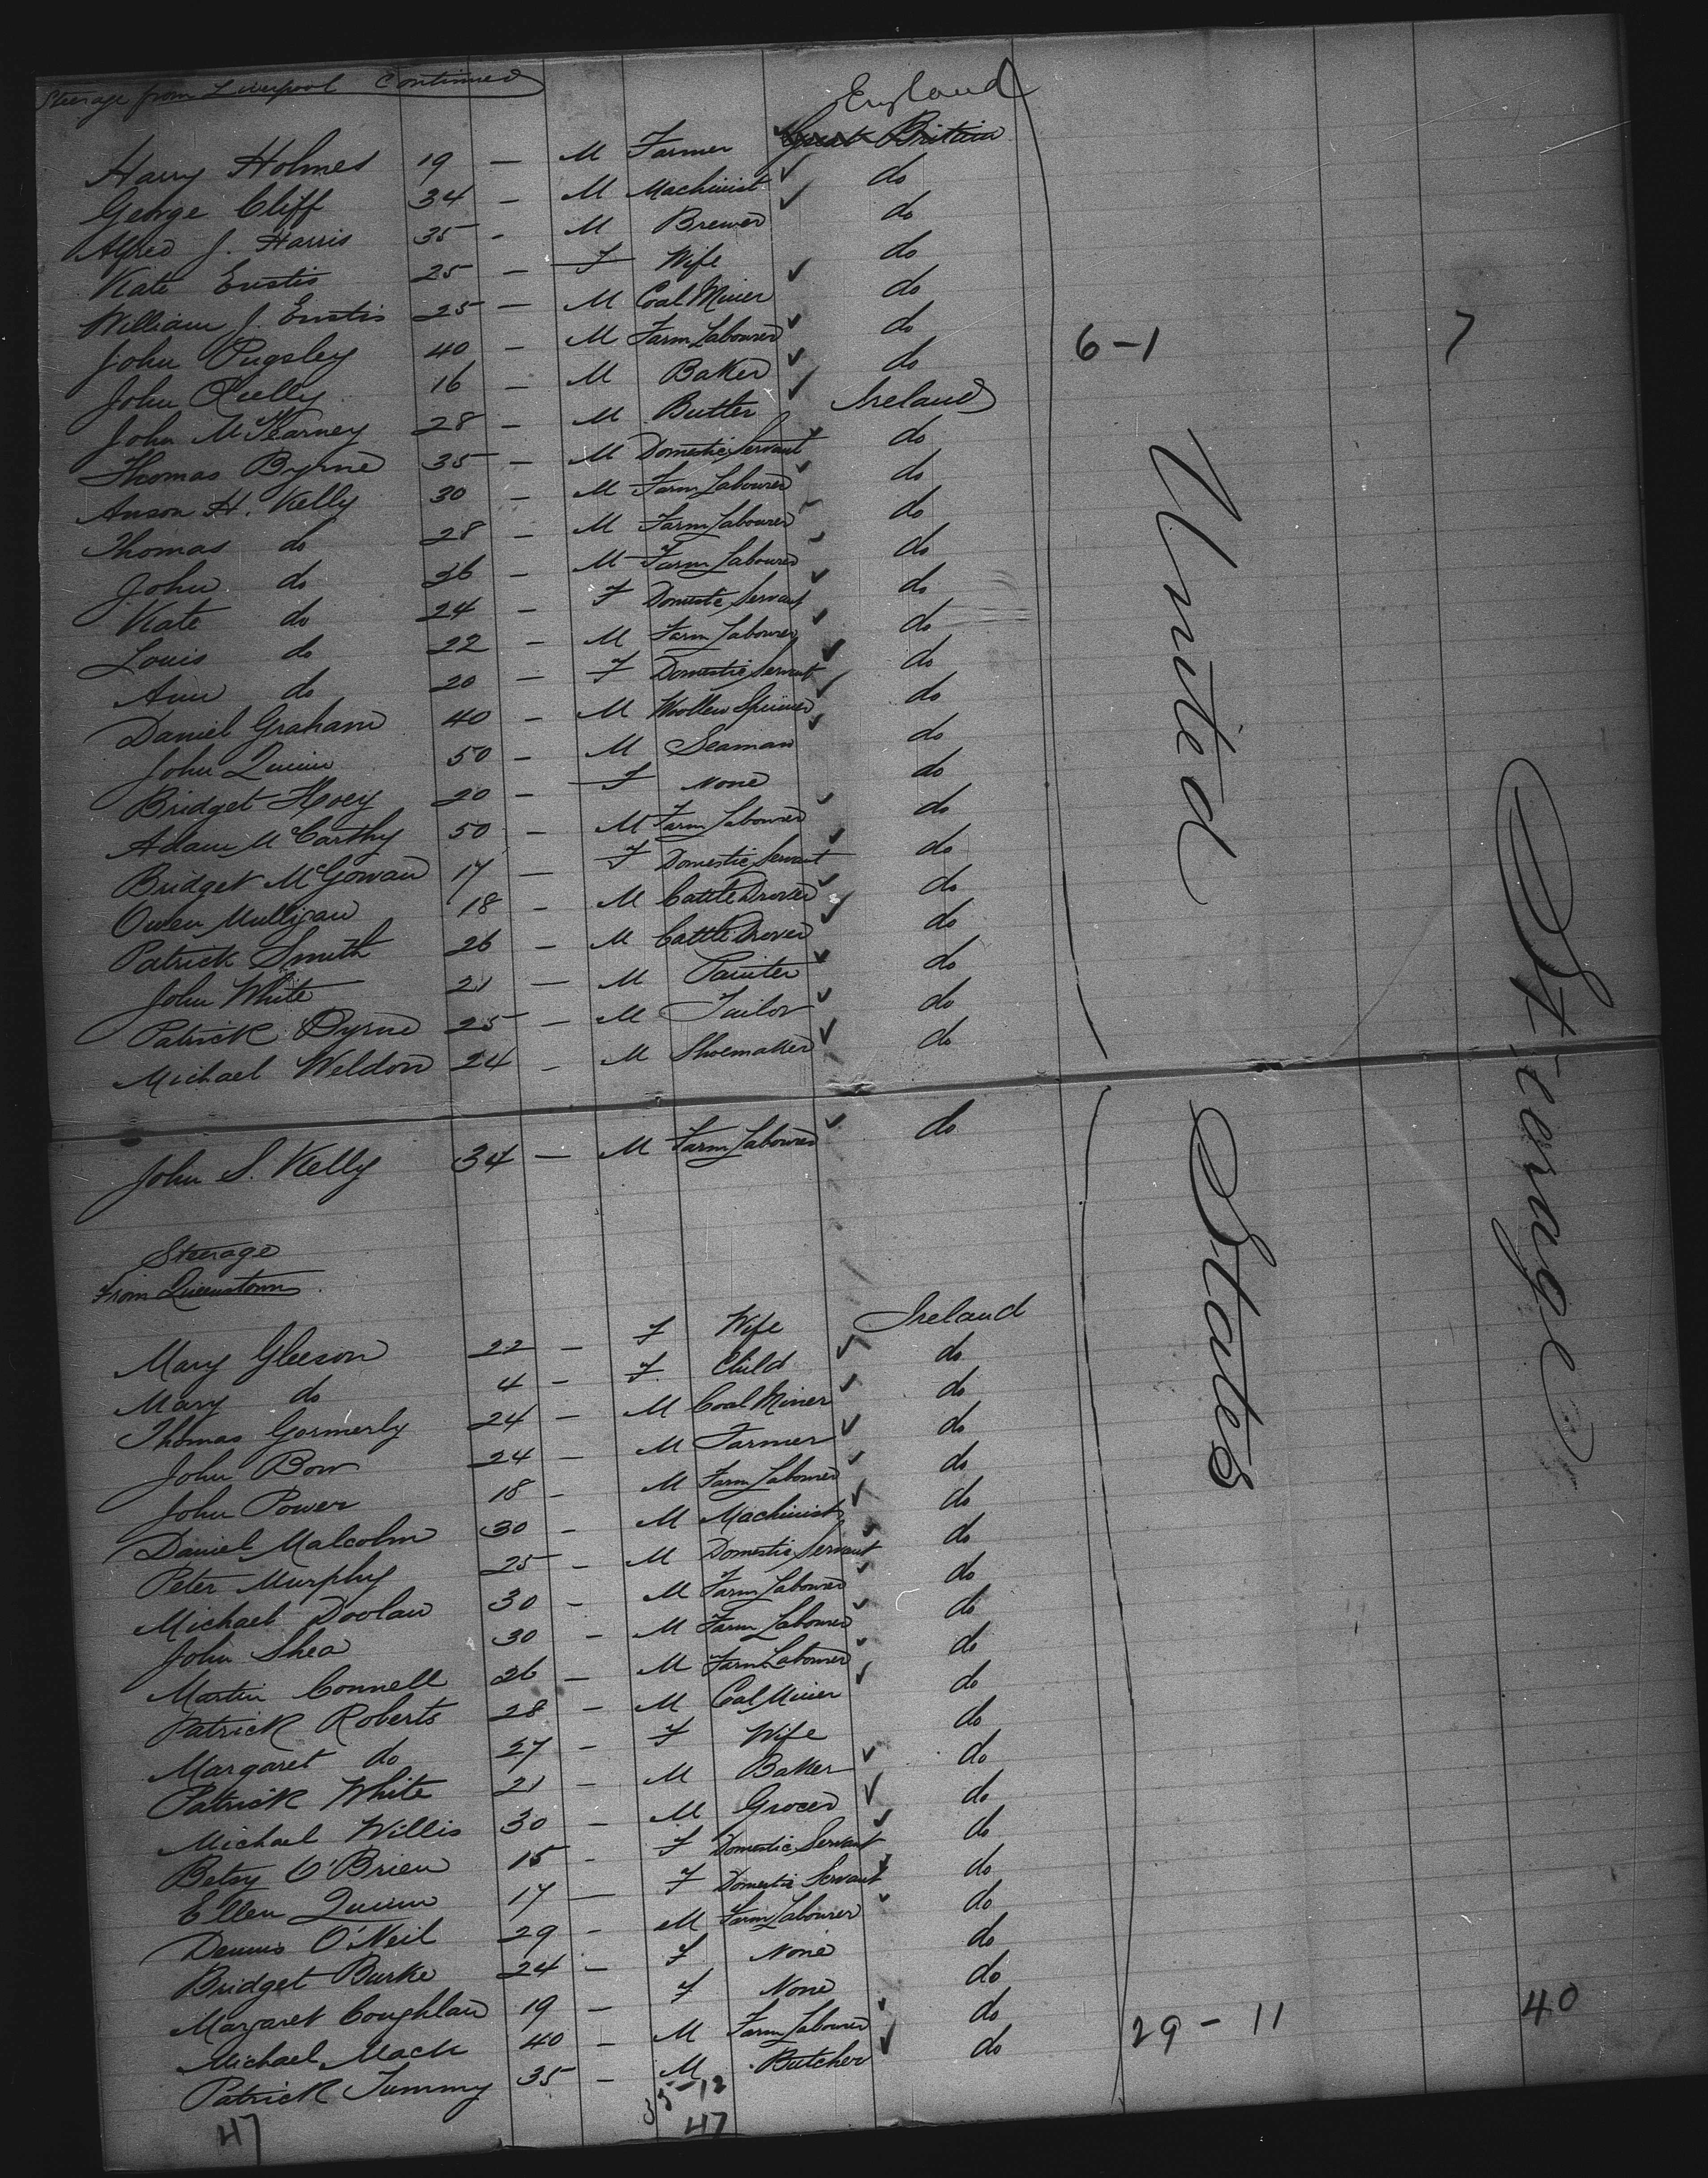 Steerage from Liverpool Continued
England
Harry Holmes 19 — M Farmer Great Britain
George Cliff 34 — M Machinist do
Alfred J. Harris 35 - M Brewer do
Kate Eustis 25 — F Wife do
William J. Eustis 25 — M Coal Miner do
John Pugsley 40 - M Farm Labourer do
John Reilly 16 - M Baker do
John McKearney 28 - M Butler Ireland
Thomas Byrne 35 - M Domestic Servant do
Anson H. Kelly 30 - M Farm Labourer do
Thomas do 28 - M Farm Labourer do
John do 26 - M Farm Labourer do
Kate do 24 - F Domestic Servant do
Louis do 22 - M Farm Labourer do
Ann do 20 - F Domestic Servant do
Daniel Graham 40 - M Woollen Spinner do
John Quinn 50 - M Seaman do
Bridget Hoey 20 - F None do
Adam McCarthy 50 - M Farm Labourer do
Bridget McGowan 17 — F Domestic Servant do
Owen Mulligan 18 - M Cattle Drover do
Patrick Smith 26 - M Cattle Drover do
John White 21 — M Painter do
Patrick Byrne 25 - M Tailor do
Michael Weldon 24 - M Shoemaker do
John S. Kelly 34 — M Farm Labourer do
Steerage
From Queenstown
Mary Gleeson 22 - F Wife Ireland
Mary do 4 - F Child do
Thomas Gormerly 24 — M Coal Miner do
John Bow 24 — M Farmer do
John Power 18 - M Farm Labourer do
Daniel Malcolm 30 - M Machinist do
Peter Murphy 25 - M Domestic Servant do
Michael Doolan 30 - M Farm Labourer do
John Shea 30 - M Farm Labourer do
Martin Connell 26 — M Farm Labourer do
Patrick Roberts 28 - M Coal Miner do
Margaret do 27 - F Wife do
Patrick White 21 - M Baker do
Michael Willis 30 - M Grocer do
Betsy O'Brien 15 - F Domestic Servant do
Ellen Quinn 17 — F Domestic Servant do
Dennis O'Neil 29 - M Farm Labourer do
Bridget Burke 24 - F None do
Margaret Coughlan 19 - F None do
Michael Mack 40 - M Farm Labourer do
Patrick Tummy 35 - M Butcher do
47
35-12
47
6-1
United
States
29-11
7
Steerage
40